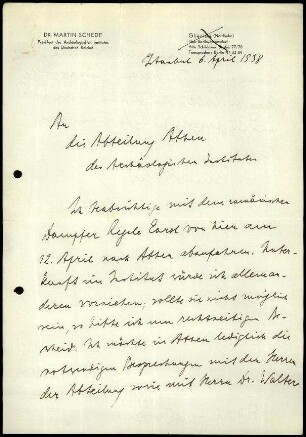 DR. MARTIN SCHEDE
Präsident des Archäologischen Instituts
des Deutschen Reiches
Istanbul 6. April 1938
An
die Abteilung Athen
des Archäologischen Instituts
Ich beabsichtige mit dem rumänischen
Dampfer Regele Carol von hier am
12. April nach Athen abzufahren. Unter-
kunft im Institut würde ich allem an-
deren vorziehen; sollte sie nicht möglich
sein, so bitte ich um rechtzeitigen Be-
scheid. Ich möchte in Athen lediglich die
notwendigen Besprechungen mit den Herren
der Abteilung sowie mit Herrn Dr. Walter